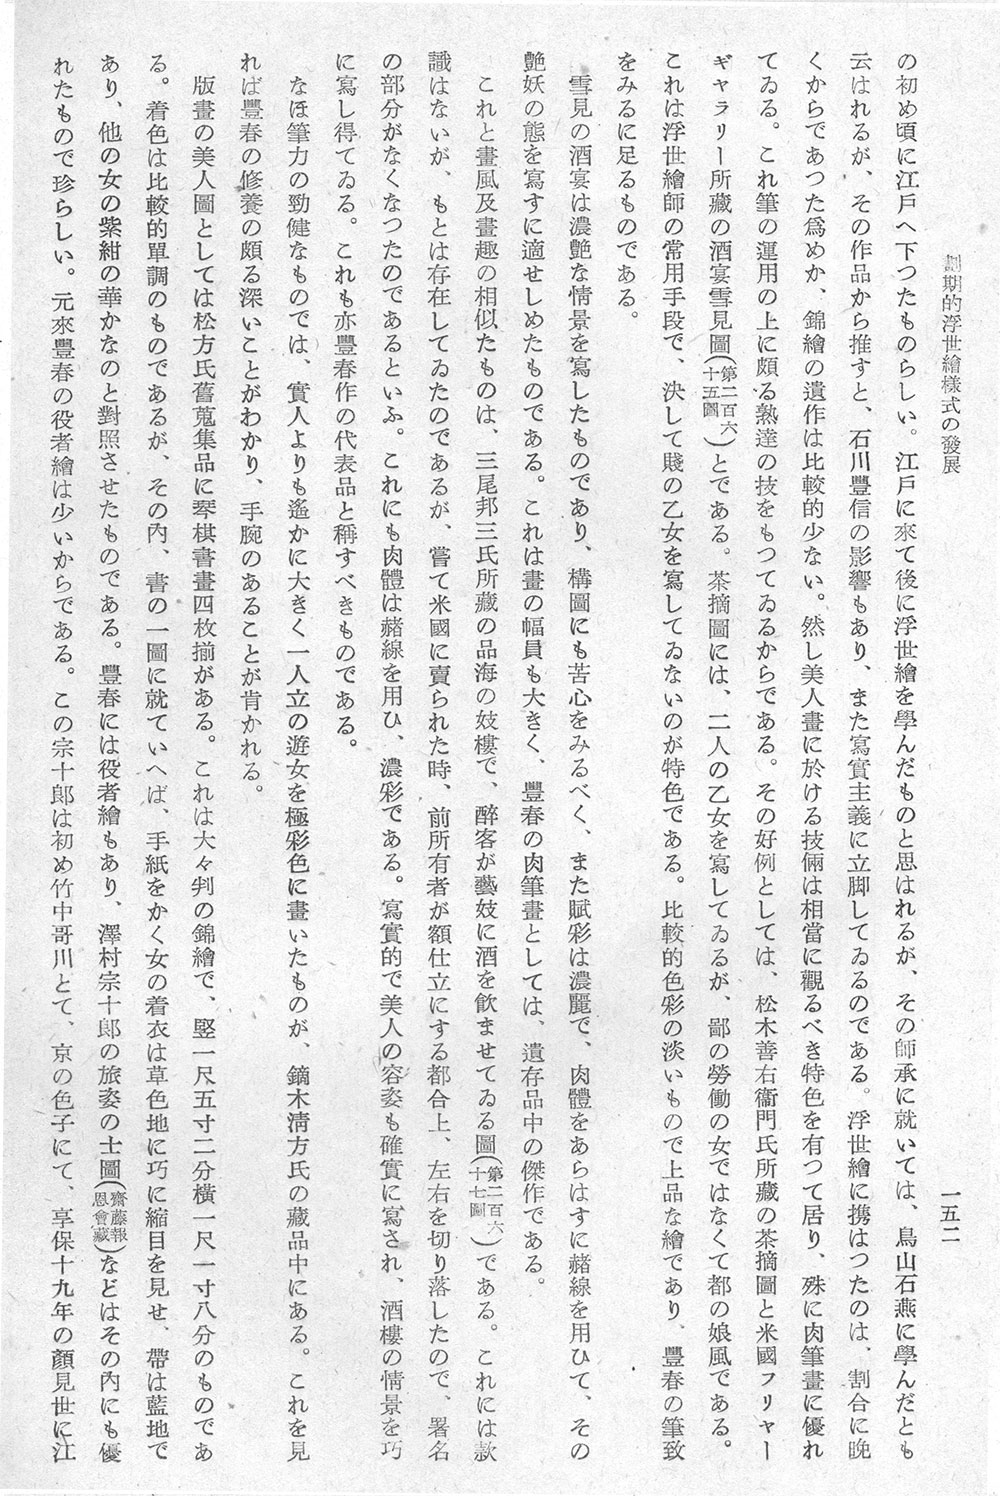 劃期的浮世繪樣式の發展
一五二
の初め頃に江戸へ下つたものらしい。江戸に來て後に浮世繪を學んだものと思はれるが、その師承に就いては、鳥山石燕に學んだとも
云はれるが、その作品から推すと、石川豐信の影響もあり、また寫實主義に立脚してゐるのである。浮世繪に携はつたのは、割合に晚
くからであつた爲めか、錦繪の遺作は比較的少ない。然し美人畫に於ける技倆は相當に觀るべき特色を有つて居り、殊に肉筆畫に優れ
てゐる。これ筆の運用の上に頗る熟達の技をもつてゐるからである。その好例としては、松木善右衞門氏所藏の茶摘圖と米國フリヤー
ギャラリー所藏の酒宴雪見圖(第二百六十五圖)とである。茶摘圖には、二人の乙女を寫してゐるが、鄙の勞働の女ではなくて都の娘風である。
これは浮世繪師の常用手段で、決して賤の乙女を寫してゐないのが特色である。比較的色彩の淡いもので上品な繪であり、豐春の筆致
をみるに足るものである。
雪見の酒宴は濃艶な情景を寫したものであり、構圖にも苦心をみるべく、また賦彩は濃麗で、肉體をあらはすに赭線を用ひて、その
艶妖の態を寫すに適せしめたものである。これは畫の幅員も大きく、豐春の肉筆畫としては、遺存品中の傑作である。
これと畫風及畫趣の相似たものは、三尾邦三氏所藏の品海の妓樓で、醉客が藝妓に酒を飮ませてゐる圖(第二百六十七圖)である。これには款
識はないが、もとは存在してゐたのであるが、嘗て米國に賣られた時、前所有者が額仕立にする都合上、左右を切り落したので、署名
の部分がなくなつたのであるといふ。これにも肉體は赭線を用ひ、濃彩である。寫實的で美人の容姿も確實に寫され、酒樓の情景を巧
に寫し得てゐる。これも亦豐春作の代表品と稱すべきものである。
なほ筆力の勁健なものでは、實人よりも遙かに大きく一人立の遊女を極彩色に畫いたものが、鏑木淸方氏の藏品中にある。これを見
れば豐春の修養の頗る深いことがわかり、手腕のあることが肯かれる。
版畫の美人圖としては松方氏舊蒐集品に琴棋書畫四枚揃がある。これは大々判の錦繪で、竪一尺五寸二分橫一尺一寸八分のものであ
る。着色は比較的單調のものであるが、その內、書の一圖に就ていへば、手紙をかく女の着衣は草色地に巧に縮目を見せ、帶は藍地で
あり、他の女の紫紺の華かなのと對照させたものである。豐春には役者繪もあり、澤村宗十郎の旅姿の士圖(齋藤報恩會藏)などはその內にも優
れたもので珍らしい。元來豐春の役者繪は少いからである。この宗十郎は初め竹中哥川とて、京の色子にて、享保十九年の顏見世に江